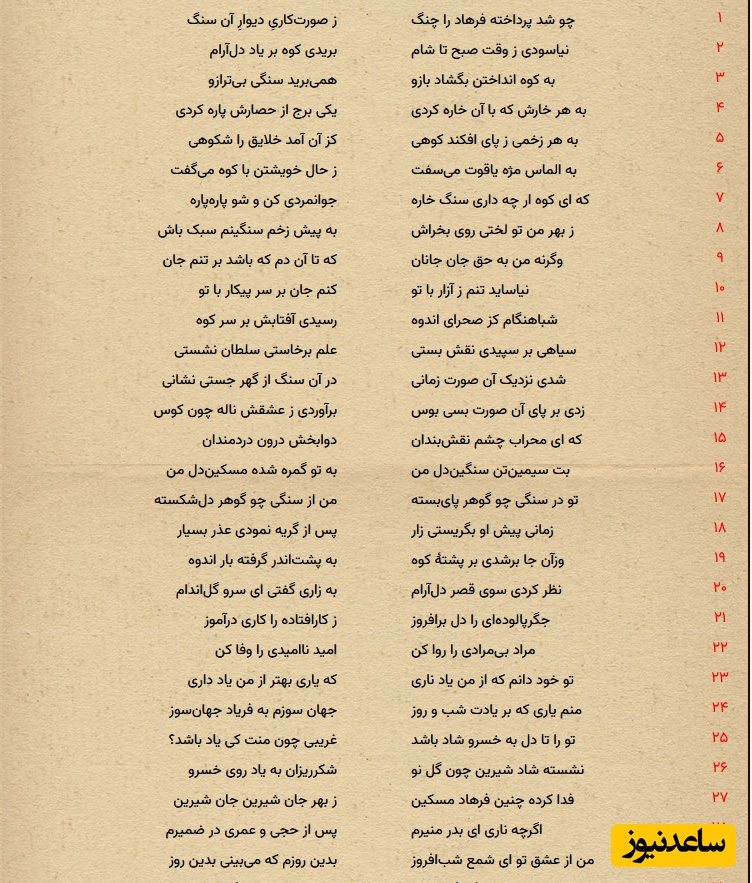 ۱ چو شد پرداخته فرهاد را چنگ ز صورت‌کاریِ دیوارِ آن سنگ
۲ نیاسودی ز وقت صبح تا شام بریدی کوه بر یاد دل‌آرام
۳ به کوه انداختن بگشاد بازو همی‌برید سنگی بی‌ترازو
۴ به هر خارش که با آن خاره کردی یکی برج از حصارش پاره کردی
۵ به هر زخمی ز پای افکند کوهی کز آن آمد خلایق را شکوهی
۶ به الماس مژه یاقوت می‌سفت ز حال خویشتن با کوه می‌گفت
۷ که ای کوه ار چه داری سنگ خاره جوانمردی کن و شو پاره‌پاره
۸ ز بهر من تو لختی روی بخراش به پیش زخم سنگینم سبک باش
۹ وگرنه من به حق جان جانان که تا آن دم که باشد بر تنم جان
۱۰ نیاساید تنم ز آزار با تو کنم جان بر سر پیکار با تو
۱۱ شباهنگام کز صحرای اندوه رسیدی آفتابش بر سر کوه
۱۲ سیاهی بر سپیدی نقش بستی علم برخاستی سلطان نشستی
۱۳ شدی نزدیک آن صورت زمانی در آن سنگ از گهر جستی نشانی
۱۴ زدی بر پای آن صورت بسی بوس برآوردی ز عشقش ناله چون کوس
۱۵ که ای محراب چشم نقش‌بندان دوابخش درون دردمندان
۱۶ بت سیمین‌تن سنگین‌دل من به تو گمره شده مسکین‌دل من
۱۷ تو در سنگی چو گوهر پای‌بسته من از سنگی چو گوهر دل‌شکسته
۱۸ زمانی پیش او بگریستی زار پس از گریه نمودی عذر بسیار
۱۹ وزآن جا برشدی بر پشتهٔ کوه به پشت‌اندر گرفته بار اندوه
۲۰ نظر کردی سوی قصر دل‌آرام به زاری گفتی ای سرو گل‌اندام
۲۱ جگرپالوده‌ای را دل برافروز ز کارافتاده را کاری درآموز
۲۲ مراد بی‌مرادی را روا کن امید ناامیدی را وفا کن
۲۳ تو خود دانم که از من یاد ناری که یاری بهتر از من یاد داری
۲۴ منم یاری که بر یادت شب و روز جهان سوزم به فریاد جهان‌سوز
۲۵ تو را تا دل به خسرو شاد باشد غریبی چون منت کی یاد باشد؟
۲۶ نشسته شاد شیرین چون گل نو شکرریزان به یاد روی خسرو
۲۷ فدا کرده چنین فرهاد مسکین ز بهر جان شیرین جان شیرین
اگرچه ناری ای بدر منیرم پس از حجی و عمری در ضمیرم
من از عشق تو ای شمع شب‌افروز بدین روزم که می‌بینی بدین روز
ساعدنیوز